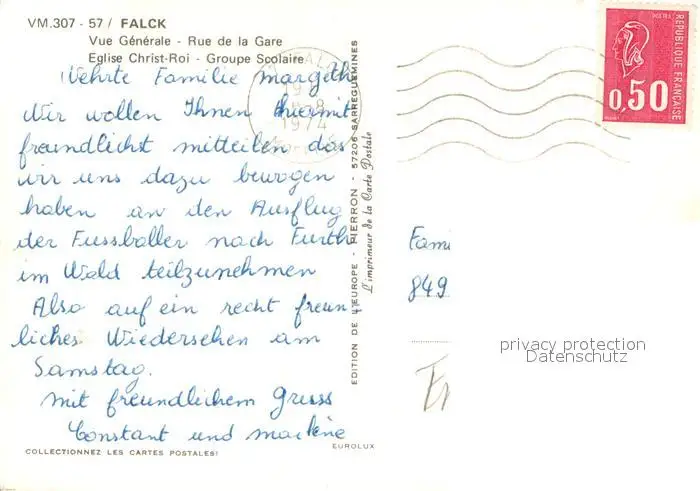 VM.307 - 57 / FALCK
Vue Générale - Rue de la Gare
Eglise Christ-Roi - Groupe Scolaire
Wehrte Familie Margeth
Wir wollen Ihnen hiermit
freundlichst mitteilen das
wir uns dazu bewogen
haben an den Ausflug
der Fussballer nach Furth
im Wald teilzunehmen
Also auf ein recht freun
liches Wiedersehen am
Samstag.
Mit freundlichem Gruss
Constant und Marlène
COLLECTIONNEZ LES CARTES POSTALES!
EUROLUX
EDITION DE L'EUROPE - PIERRON - 57206 SARREGUEMINES
L'imprimeur de la Carte Postale
1974
REPUBLIQUE FRANÇAISE
POSTES
0,50
Fami
849
privacy protection
Datenschutz